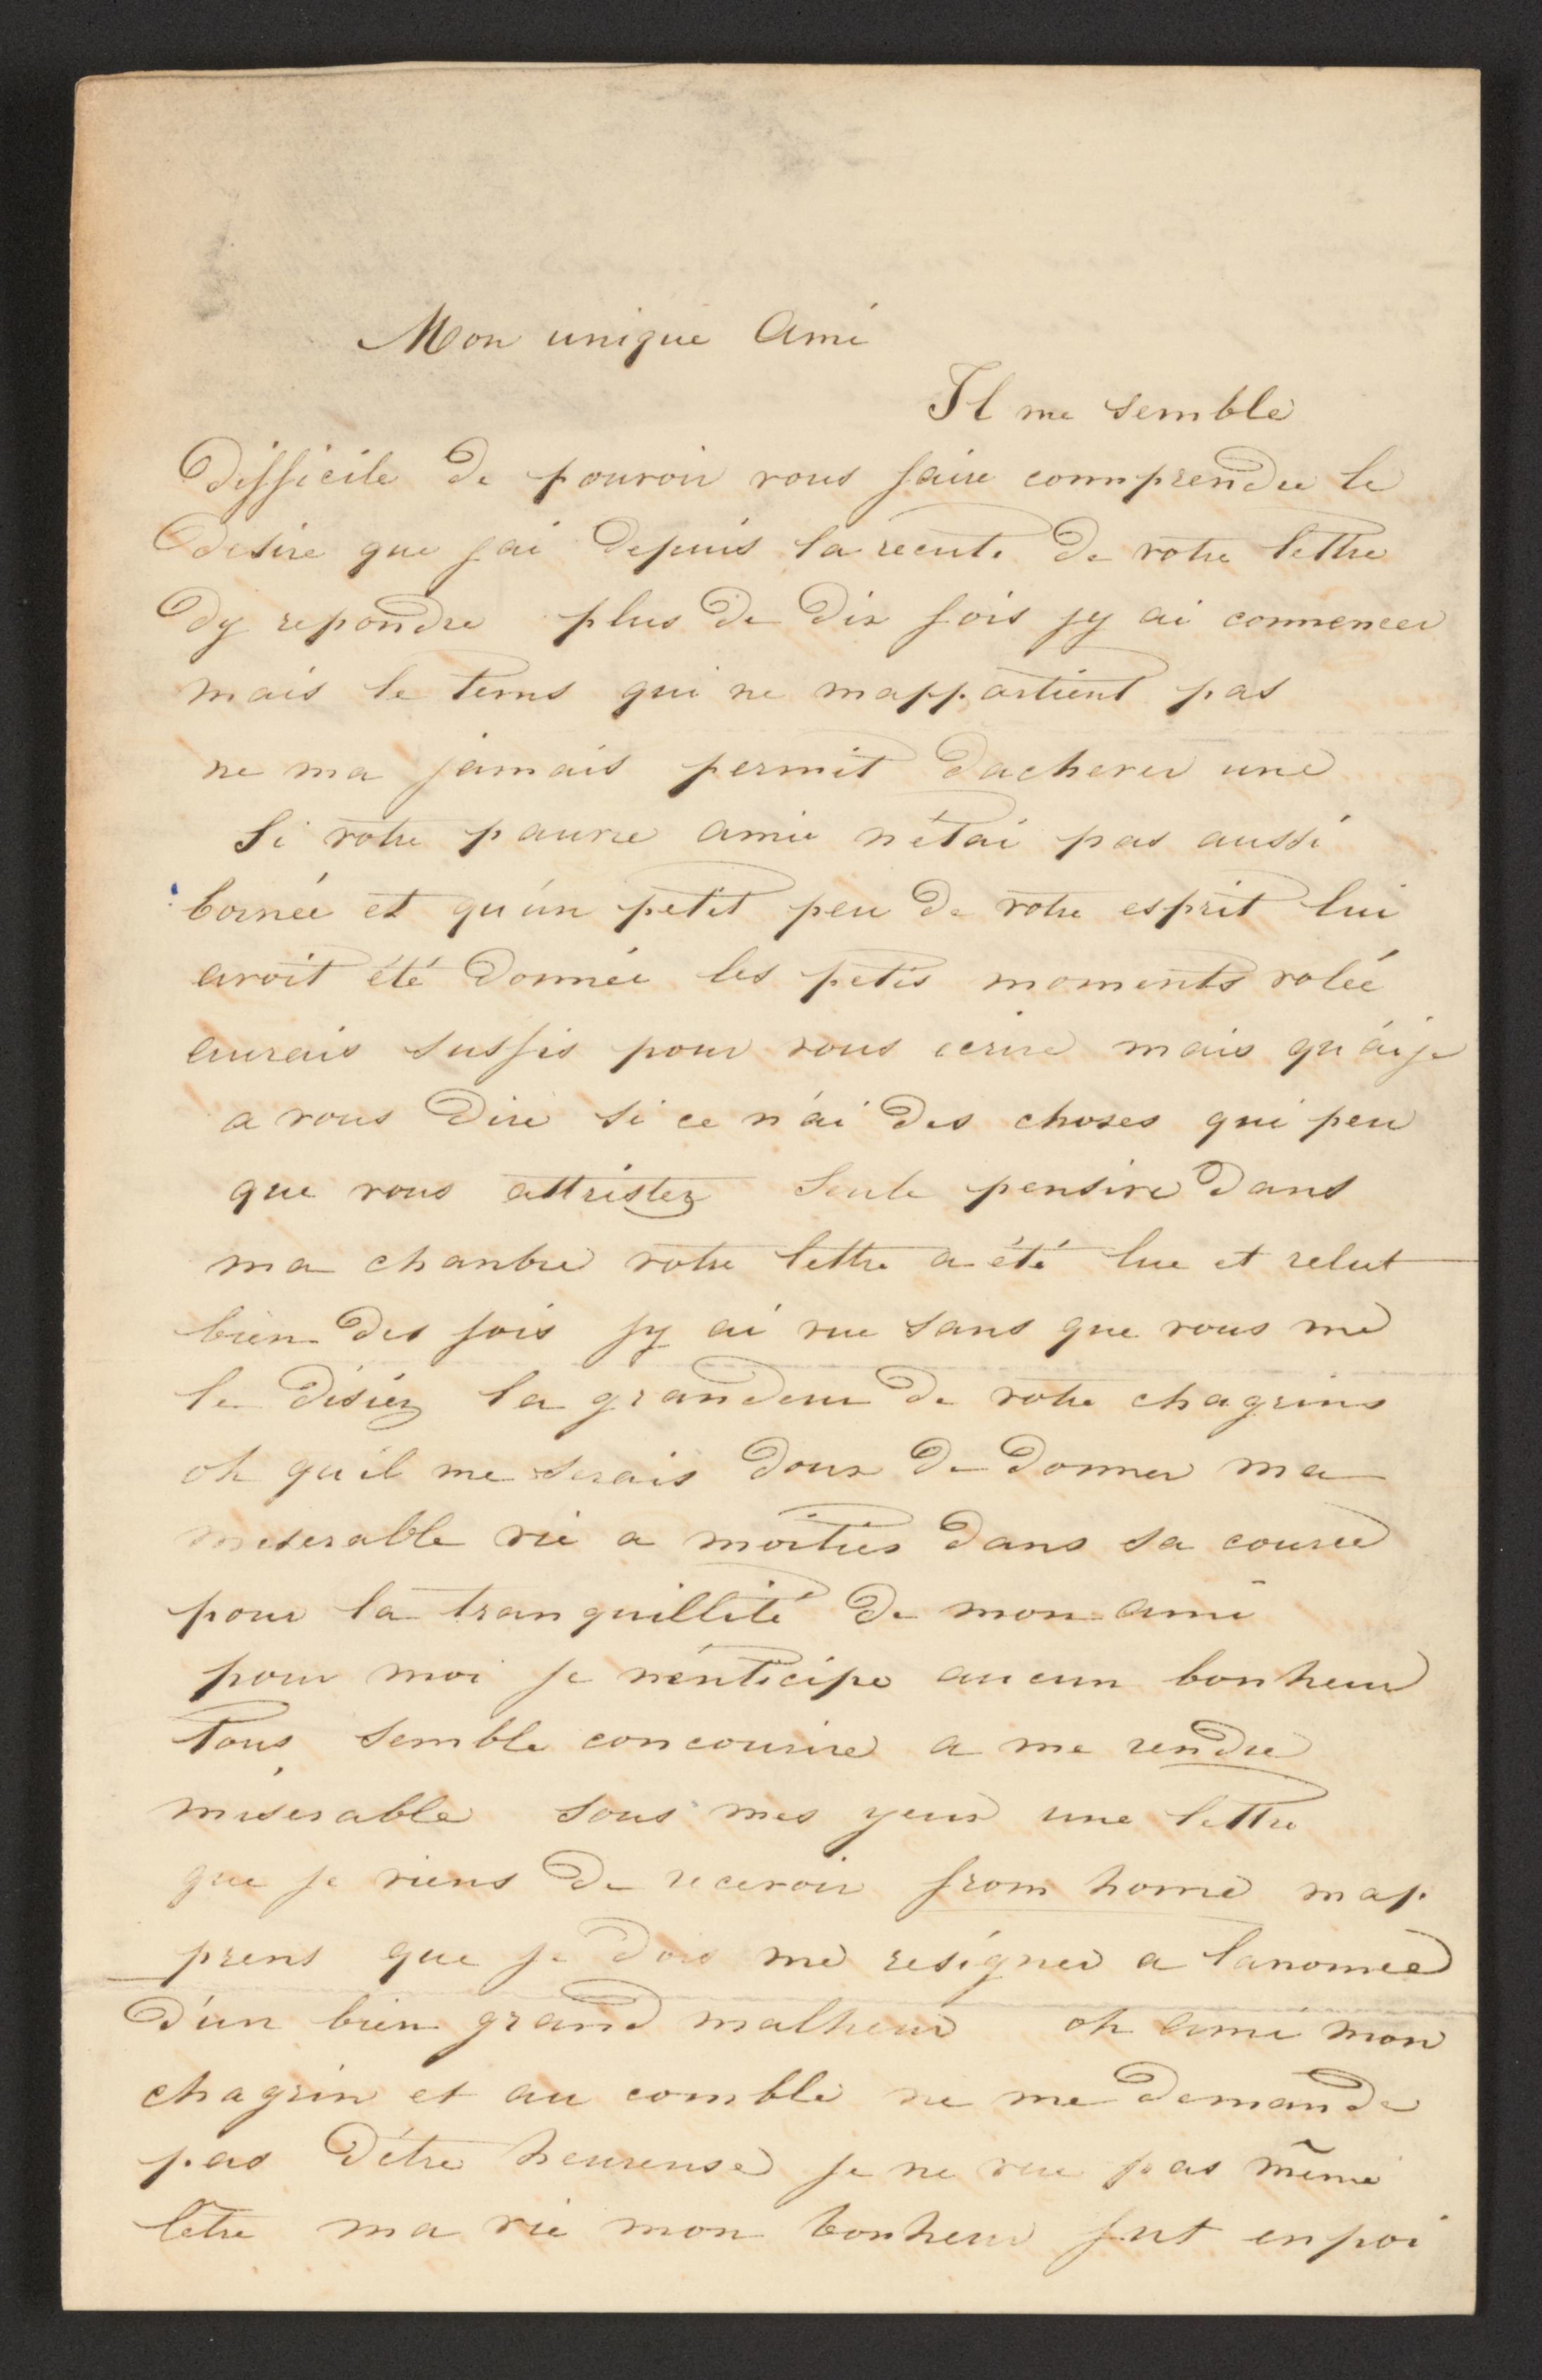 Mon unique Ami
Il me semble
Difficile De pouvoir vous faire comprendre le
Desire que jai Depuis la recente De votre lettre
Dy repondre plus De Dix fois jy ai commencer
mais le tems qui ne mappartient pas
ne ma jamais permit Dachever une
Si votre pauvre amie n'étai pas aussi
bornée et qu'un petit peu De votre esprit lui
avoit été Donnée les petis moments volée
aurais suffis pour vous ecrire mais qu'ai je
a vous Dire si ce n'ai Des choses qui peu
que vous attristez Seule pensive Dans
ma chanbre votre lettre a été lue et relut
bien Des fois jy ai vue sans que vous me
le Disiez la grandeur De votre chagrins
oh qu'il me serais Doux De Donner ma
meserable vie a moities Dans sa course
pour la tranquillité De mon ami
pour moi je n'enticipe aucun bonheur
Tous semble concourire a me rendre
miserable sous mes yeux une lettre
que je viens De recevoir from home map
prens que je Dois me resigner a lanonnée
D'un bien grand malheur oh ami mon
chagrin et au comble ne me Demande
pas D'étre heureuse je ne veu pas même
letre ma vie mon bonheur fut enpoi